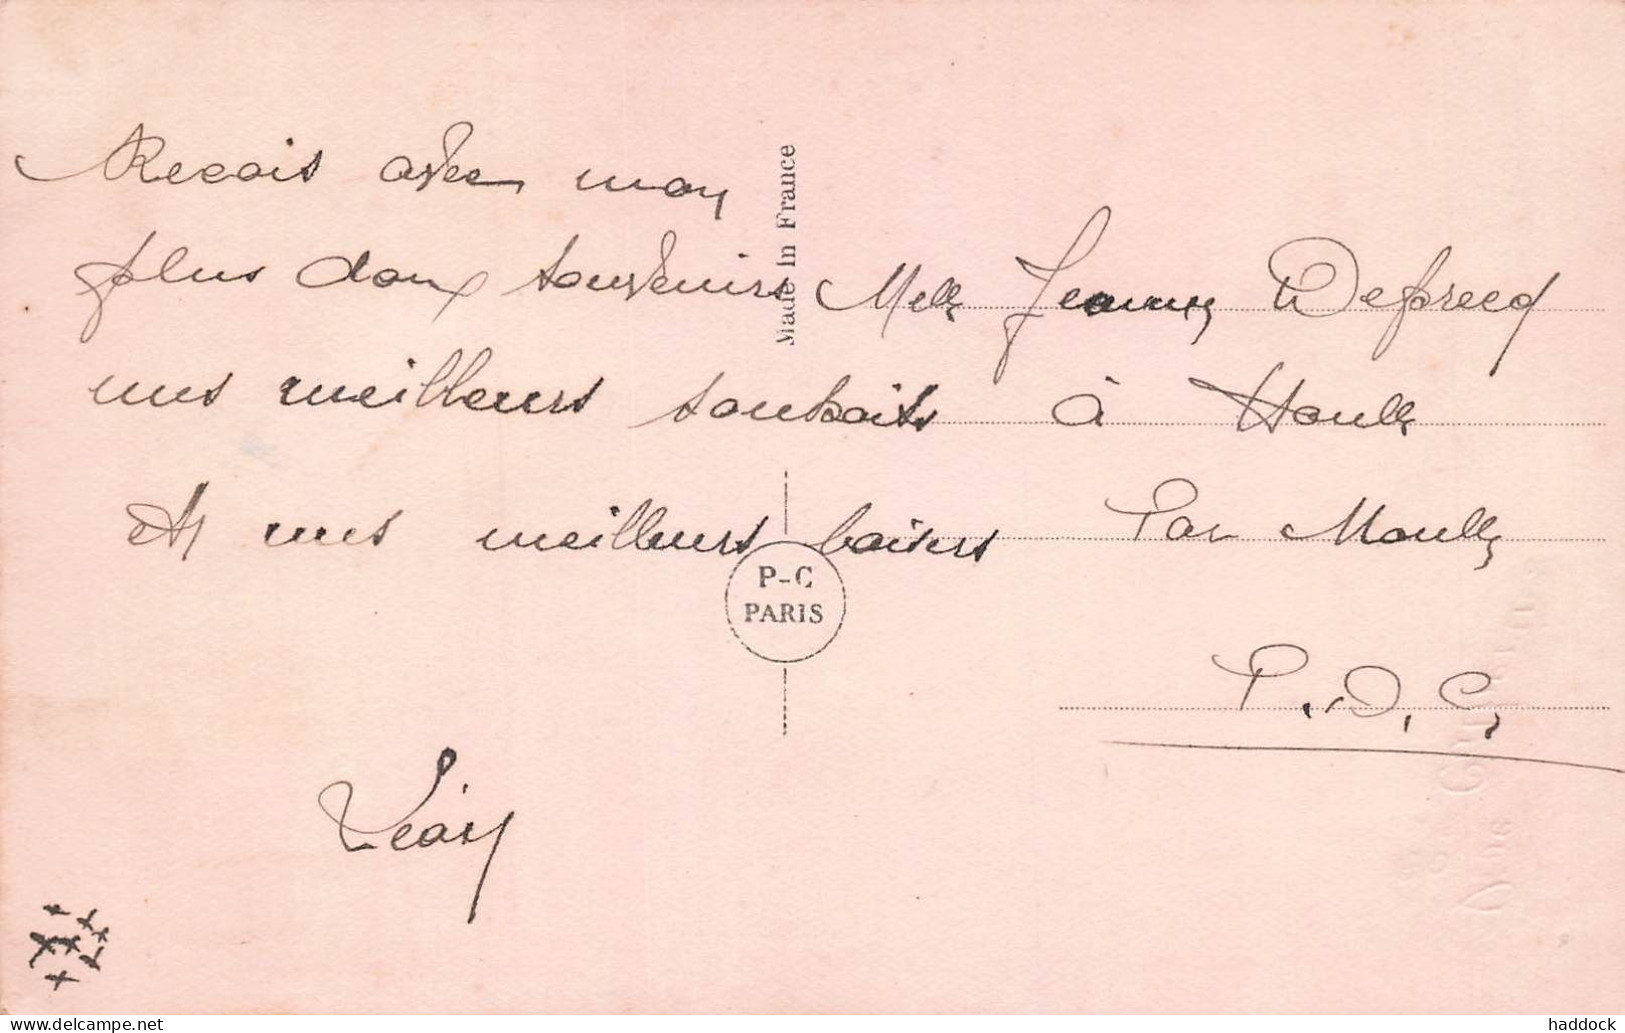 Recois avec mon
plus doux souvenirs
mes meilleurs souhaits
et mes meilleurs baisers
Léon
Made in France
P-C
PARIS
Melle Jeanne Deprecq
à Houlle
Par Moulle
P.D.C.
delcampe.net
haddock